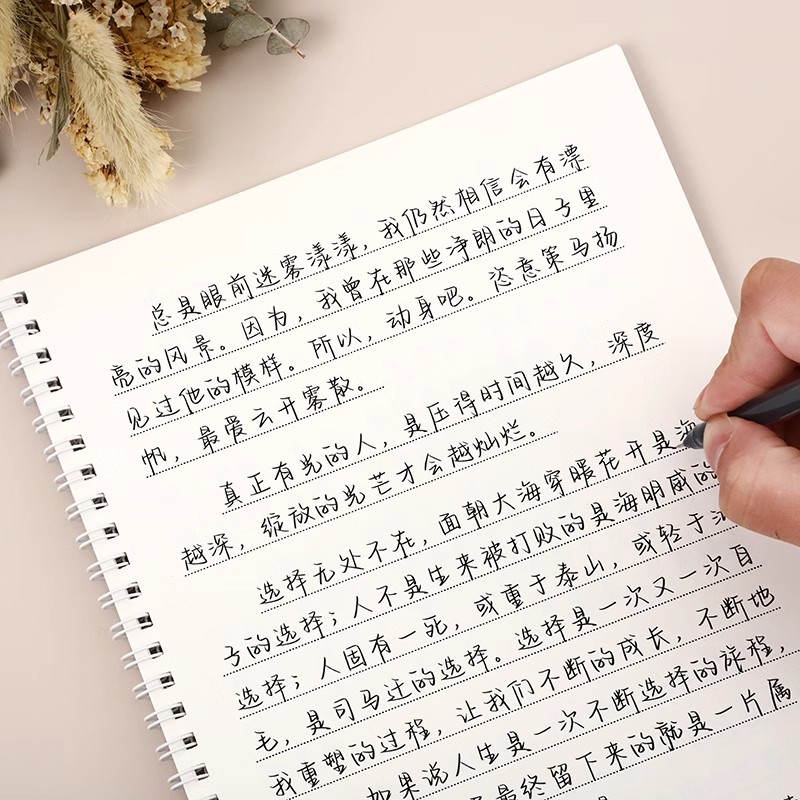 总是眼前迷雾漾漾，我仍然相信会有漂
亮的风景。因为，我曾在那些净朗的日子里
见过他的模样。所以，动身吧。恣意策马扬
帆，最爱云开雾散。
真正有光的人，是压得时间越久，深度
越深，绽放的光芒才会越灿烂。
选择无处不在，面朝大海穿暖花开是海
子的选择；人不是生来被打败的是海明威的
选择；人固有一死，或重于泰山，或轻于
毛，是司马迁的选择。选择是一次又一次自
我重塑的过程，让我们不断的成长，不断地
如果说人生是一次不断选择的旅程，
最终留下来的就是一片属